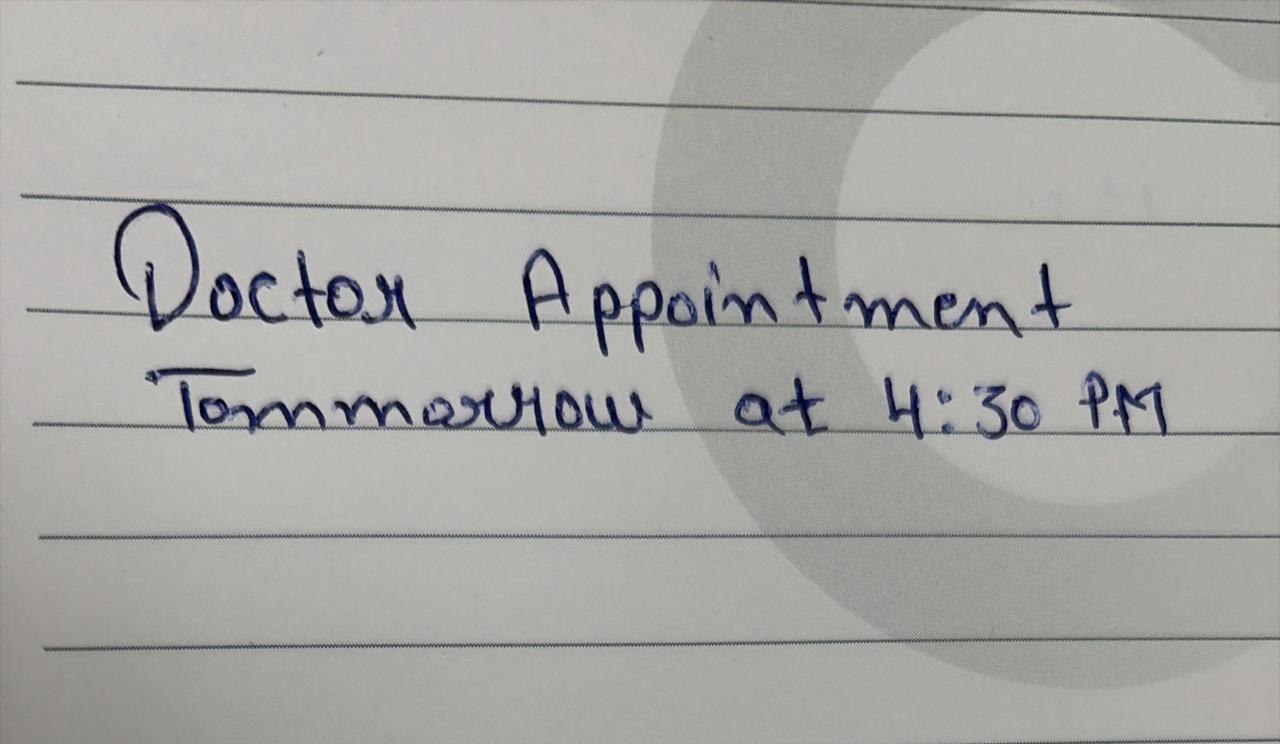 Doctor Appointment
Tommorrow at 4:30 PM